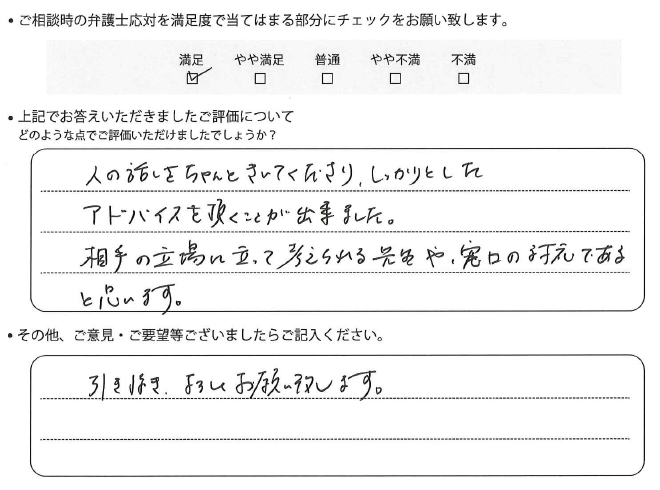 ・ご相談時の弁護士応対を満足度で当てはまる部分にチェックをお願い致します。
満足 やや満足 普通 やや不満 不満
・上記でお答えいただきましたご評価について
どのような点でご評価いただけましたでしょうか？
人の話しをちゃんときいてくださり、しっかりとした
アドバイスを頂くことが出来ました。
相手の立場に立って考えられる先生や、窓口の対応である
と思います。
・その他、ご意見・ご要望等ございましたらご記入ください。
引き続き、よろしくお願い致します。